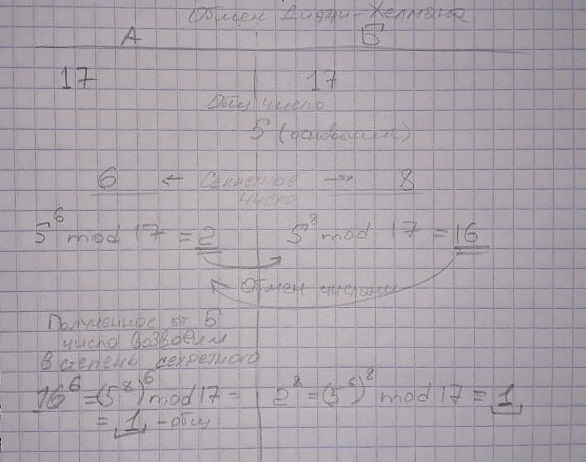 Обмен Диффи-Хелмана
А Б
17 17
Общ число
5 (основание)
6 ← Секретное → 8
число
5^6 mod 17 = 2 5^8 mod 17 = 16
Обмен числами
Полученное от Б
число возводим
в степень секретного
16^6 = (5^8)^6 mod 17 = 2^8 = (5^6)^8 mod 17 = 1
= 1 - общ.